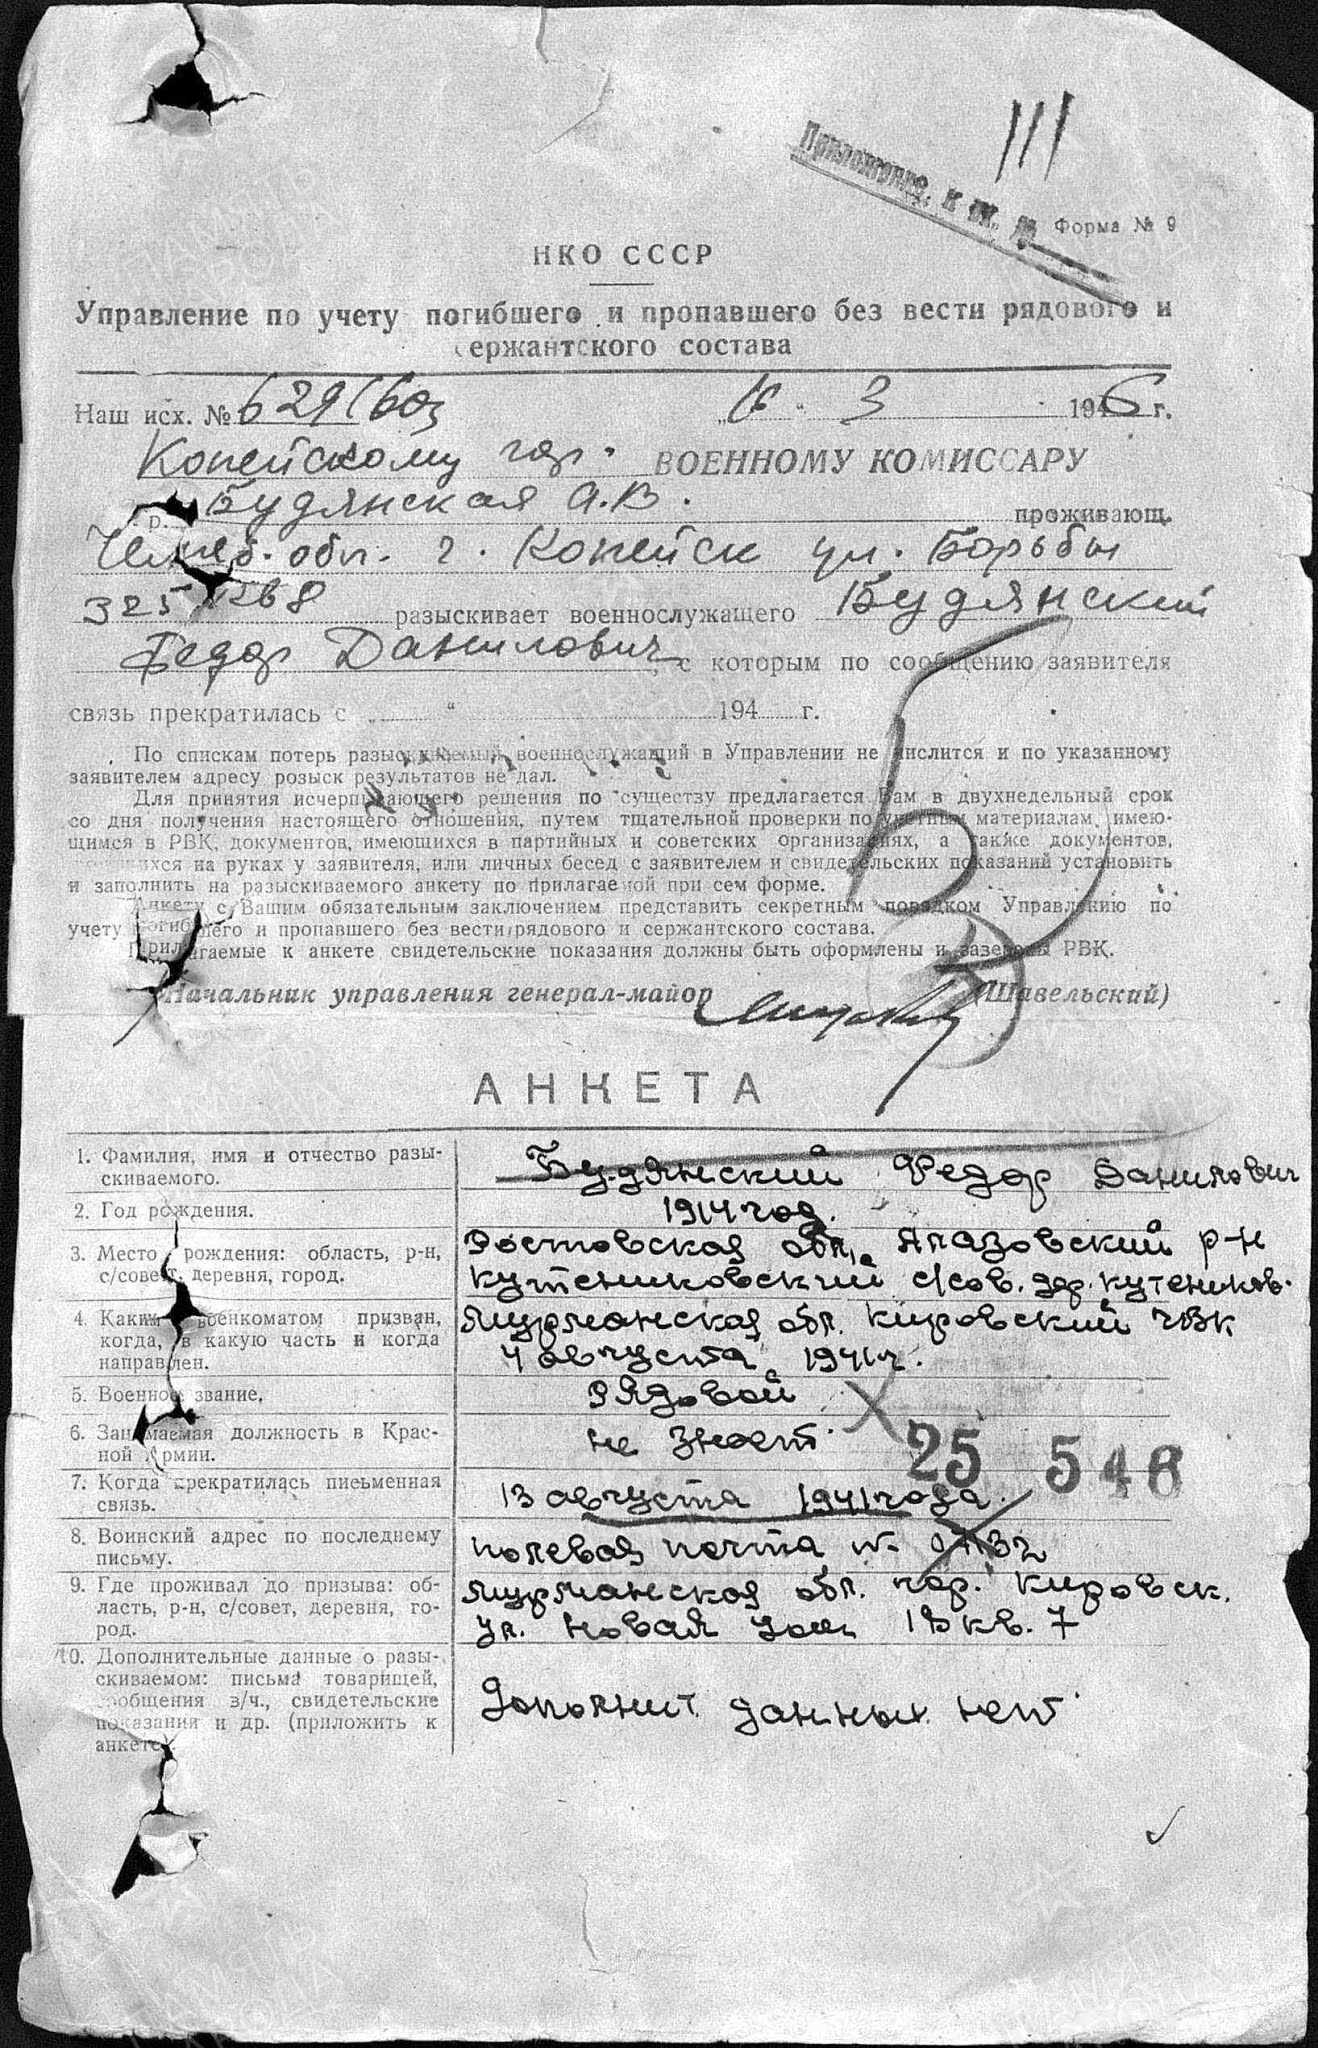 Приложение к вх. №
Форма № 9
НКО СССР
Управление по учету погибшего и пропавшего без вести рядового и
сержантского состава
Наш исх. № 629 „16“ 3 1946 г.
Копейскому гор. ВОЕННОМУ КОМИССАРУ
гр. Будянская А.В. проживающ.
Челяб. обл. г. Копейск ул. Борьбы
325 разыскивает военнослужащего Будянский
Федор Данилович с которым по сообщению заявителя
связь прекратилась с „ “ 194 г.
По спискам потерь разыскиваемый военнослужащий в Управлении не числится и по указанному
заявителем адресу розыск результатов не дал.
Для принятия исчерпывающего решения по существу предлагается Вам в двухнедельный срок
со дня получения настоящего отношения, путем тщательной проверки по учетным материалам, имею-
щимся в РВК, документов, имеющихся в партийных и советских организациях, а также документов,
имеющихся на руках у заявителя, или личных бесед с заявителем и свидетельских показаний установить
и заполнить на разыскиваемого анкету по прилагаемой при сем форме.
Анкету с Вашим обязательным заключением представить секретным порядком Управлению по
учету погибшего и пропавшего без вести рядового и сержантского состава.
Прилагаемые к анкете свидетельские показания должны быть оформлены и заверены РВК.
Начальник управления генерал-майор (Шавельский)
АНКЕТА
1. Фамилия, имя и отчество разы-
скиваемого.
Будянский Федор Данилович
2. Год рождения.
1914 год.
3. Место рождения: область, р-н,
с/совет, деревня, город.
Ростовская обл. Алазовский р-н
Кутениковский с/сов. дер. Кутеников.
4. Каким военкоматом призван,
когда, в какую часть и когда
направлен.
Мурманская обл. Кировский ГВК
4 августа 1941 г.
5. Военное звание.
Рядовой
6. Занимаемая должность в Крас-
ной Армии.
не знает
25 546
7. Когда прекратилась письменная
связь.
13 августа 1941 года.
8. Воинский адрес по последнему
письму.
полевая почта №
9. Где проживал до призыва: об-
ласть, р-н, с/совет, деревня, го-
род.
Мурманская обл. гор. Кировск.
ул. Новая дом 13 кв. 7
10. Дополнительные данные о разы-
скиваемом: письма товарищей,
сообщения в/ч., свидетельские
показания и др. (приложить к
анкете).
Дополнит. данных нет